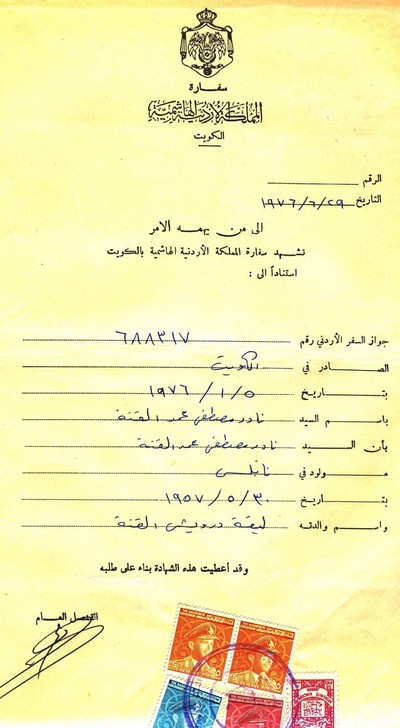 سفارة
المملكة الأردنية الهاشمية
الكويت
الرقم
التاريخ ١٩٧٦/٦/٢٩
الى من يهمه الامر
تشهد سفارة المملكة الأردنية الهاشمية بالكويت
استناداً الى :
جواز السفر الأردني رقم ٦٨٨٣١٧
الصادر في الكويت
بتاريخ ١٩٧٦/١/٥
باسم السيد نادر مصطفى محمد القنة
بأن السيد نادر مصطفى محمد القنة
مولود في نابلس
بتاريخ ١٩٥٧/٥/٣٠
واسم والدته درويش القنة
وقد أعطيت هذه الشهادة بناء على طلبه
القنصل العام